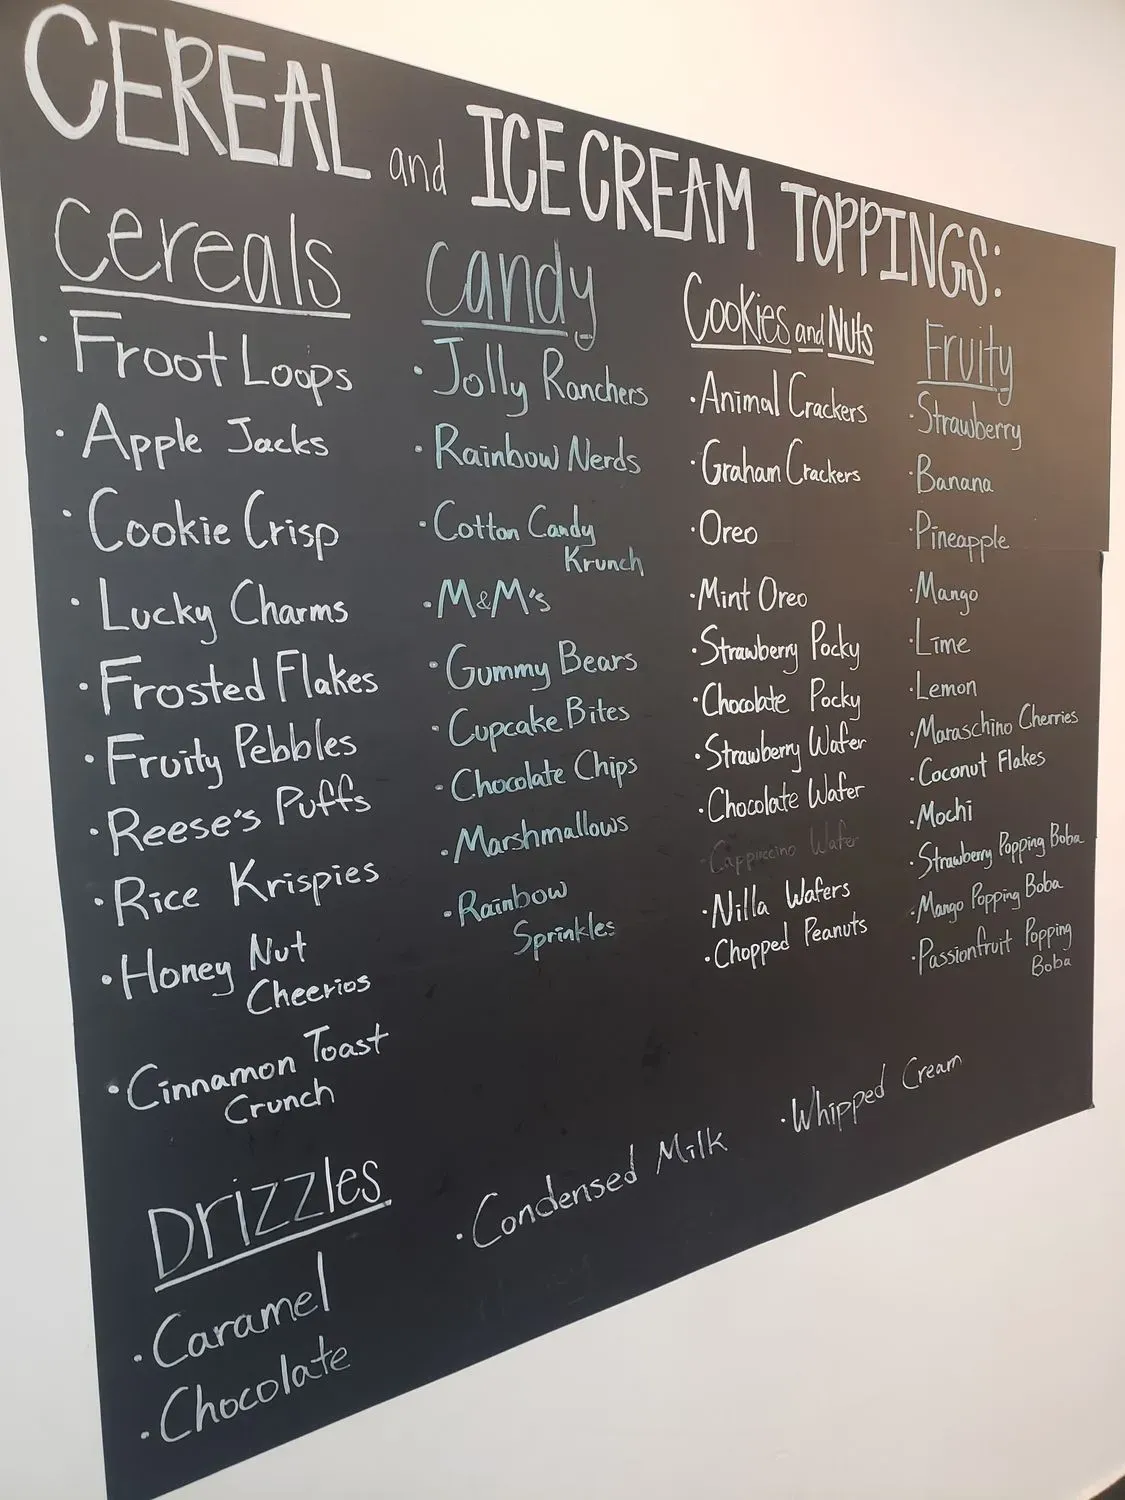 CEREAL and ICE CREAM TOPPINGS:
cereals
· Froot Loops
· Apple Jacks
· Cookie Crisp
· Lucky Charms
· Frosted Flakes
· Fruity Pebbles
· Reese's Puffs
· Rice Krispies
· Honey Nut
Cheerios
· Cinnamon Toast
Crunch
candy
· Jolly Ranchers
· Rainbow Nerds
· Cotton Candy
Krunch
· M&M's
· Gummy Bears
· Cupcake Bites
· Chocolate Chips
· Marshmallows
· Rainbow
Sprinkles
Cookies and Nuts
· Animal Crackers
· Graham Crackers
· Oreo
· Mint Oreo
· Strawberry Pocky
· Chocolate Pocky
· Strawberry Wafer
· Chocolate Wafer
· Cappuccino Wafer
· Nilla Wafers
· Chopped Peanuts
Fruity
· Strawberry
· Banana
· Pineapple
· Mango
· Lime
· Lemon
· Maraschino Cherries
· Coconut Flakes
· Mochi
· Strawberry Popping Boba
· Mango Popping Boba
· Passionfruit Popping
Boba
Drizzles
· Caramel
· Chocolate
· Condensed Milk
· Whipped Cream